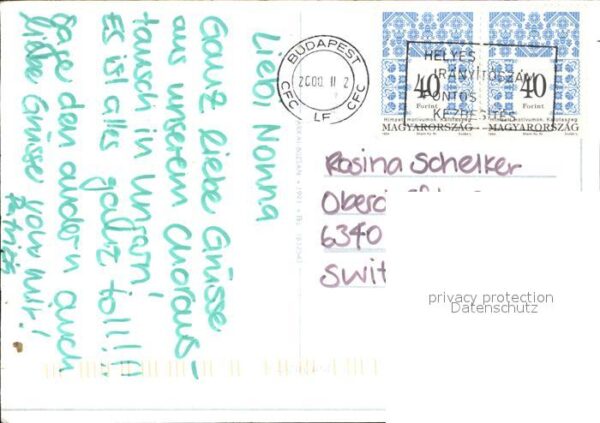 Liebi Nonna
Ganz liebe Grüsse
aus unserem Choraus-
tausch in Ungarn!
Es ist alles ganz toll!!!!
Sage den andern auch
liebe Grüsse von mir!
BUDAPEST
2000 11 2
CFC CFC
LF
HELYES
IRÁNYÍTÓSZÁM
FONTOS
KÉZBESÍTÉS
40 40
Forint Forint
MAGYARORSZÁG MAGYARORSZÁG
Rosina Schelker
6340
Swit
privacy protection
Datenschutz